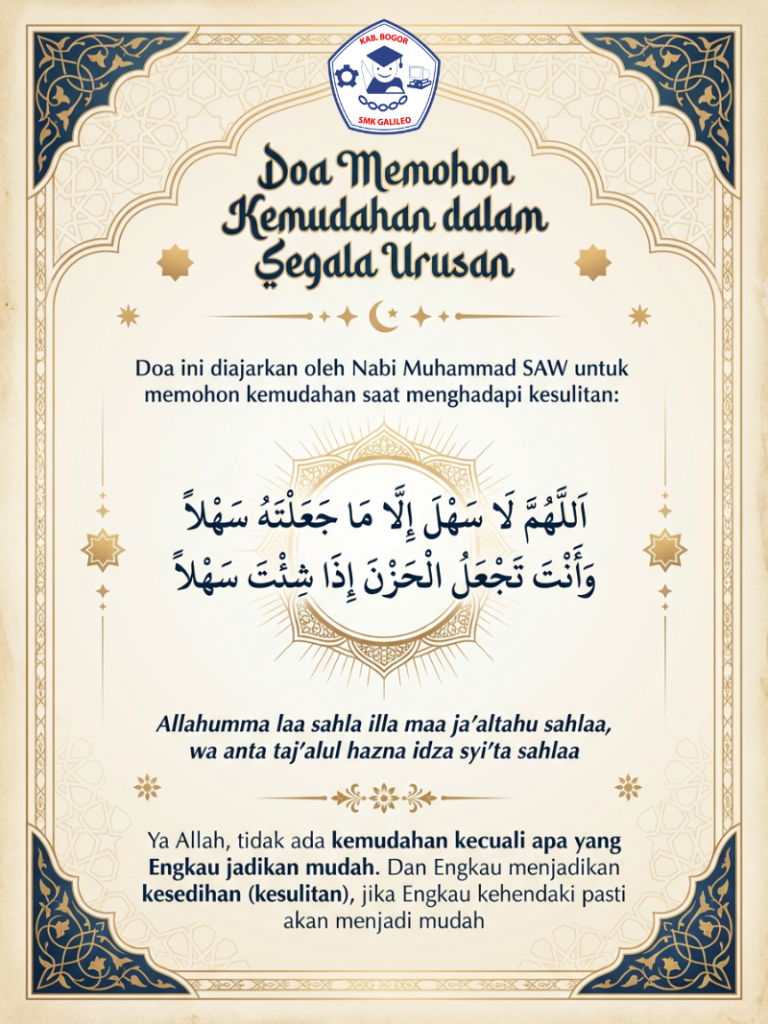 KAB. BOGOR
SMK GALILEO
Doa Memohon
Kemudahan dalam
Segala Urusan
Doa ini diajarkan oleh Nabi Muhammad SAW untuk
memohon kemudahan saat menghadapi kesulitan:
اَللَّهُمَّ لَا سَهْلَ إِلَّا مَا جَعَلْتَهُ سَهْلاً
وَأَنْتَ تَجْعَلُ الْحَزْنَ إِذَا شِئْتَ سَهْلاً
Allahumma laa sahla illa maa ja’altahu sahlaa,
wa anta taj’alul hazna idza syi’ta sahlaa
Ya Allah, tidak ada kemudahan kecuali apa yang
Engkau jadikan mudah. Dan Engkau menjadikan
kesedihan (kesulitan), jika Engkau kehendaki pasti
akan menjadi mudah